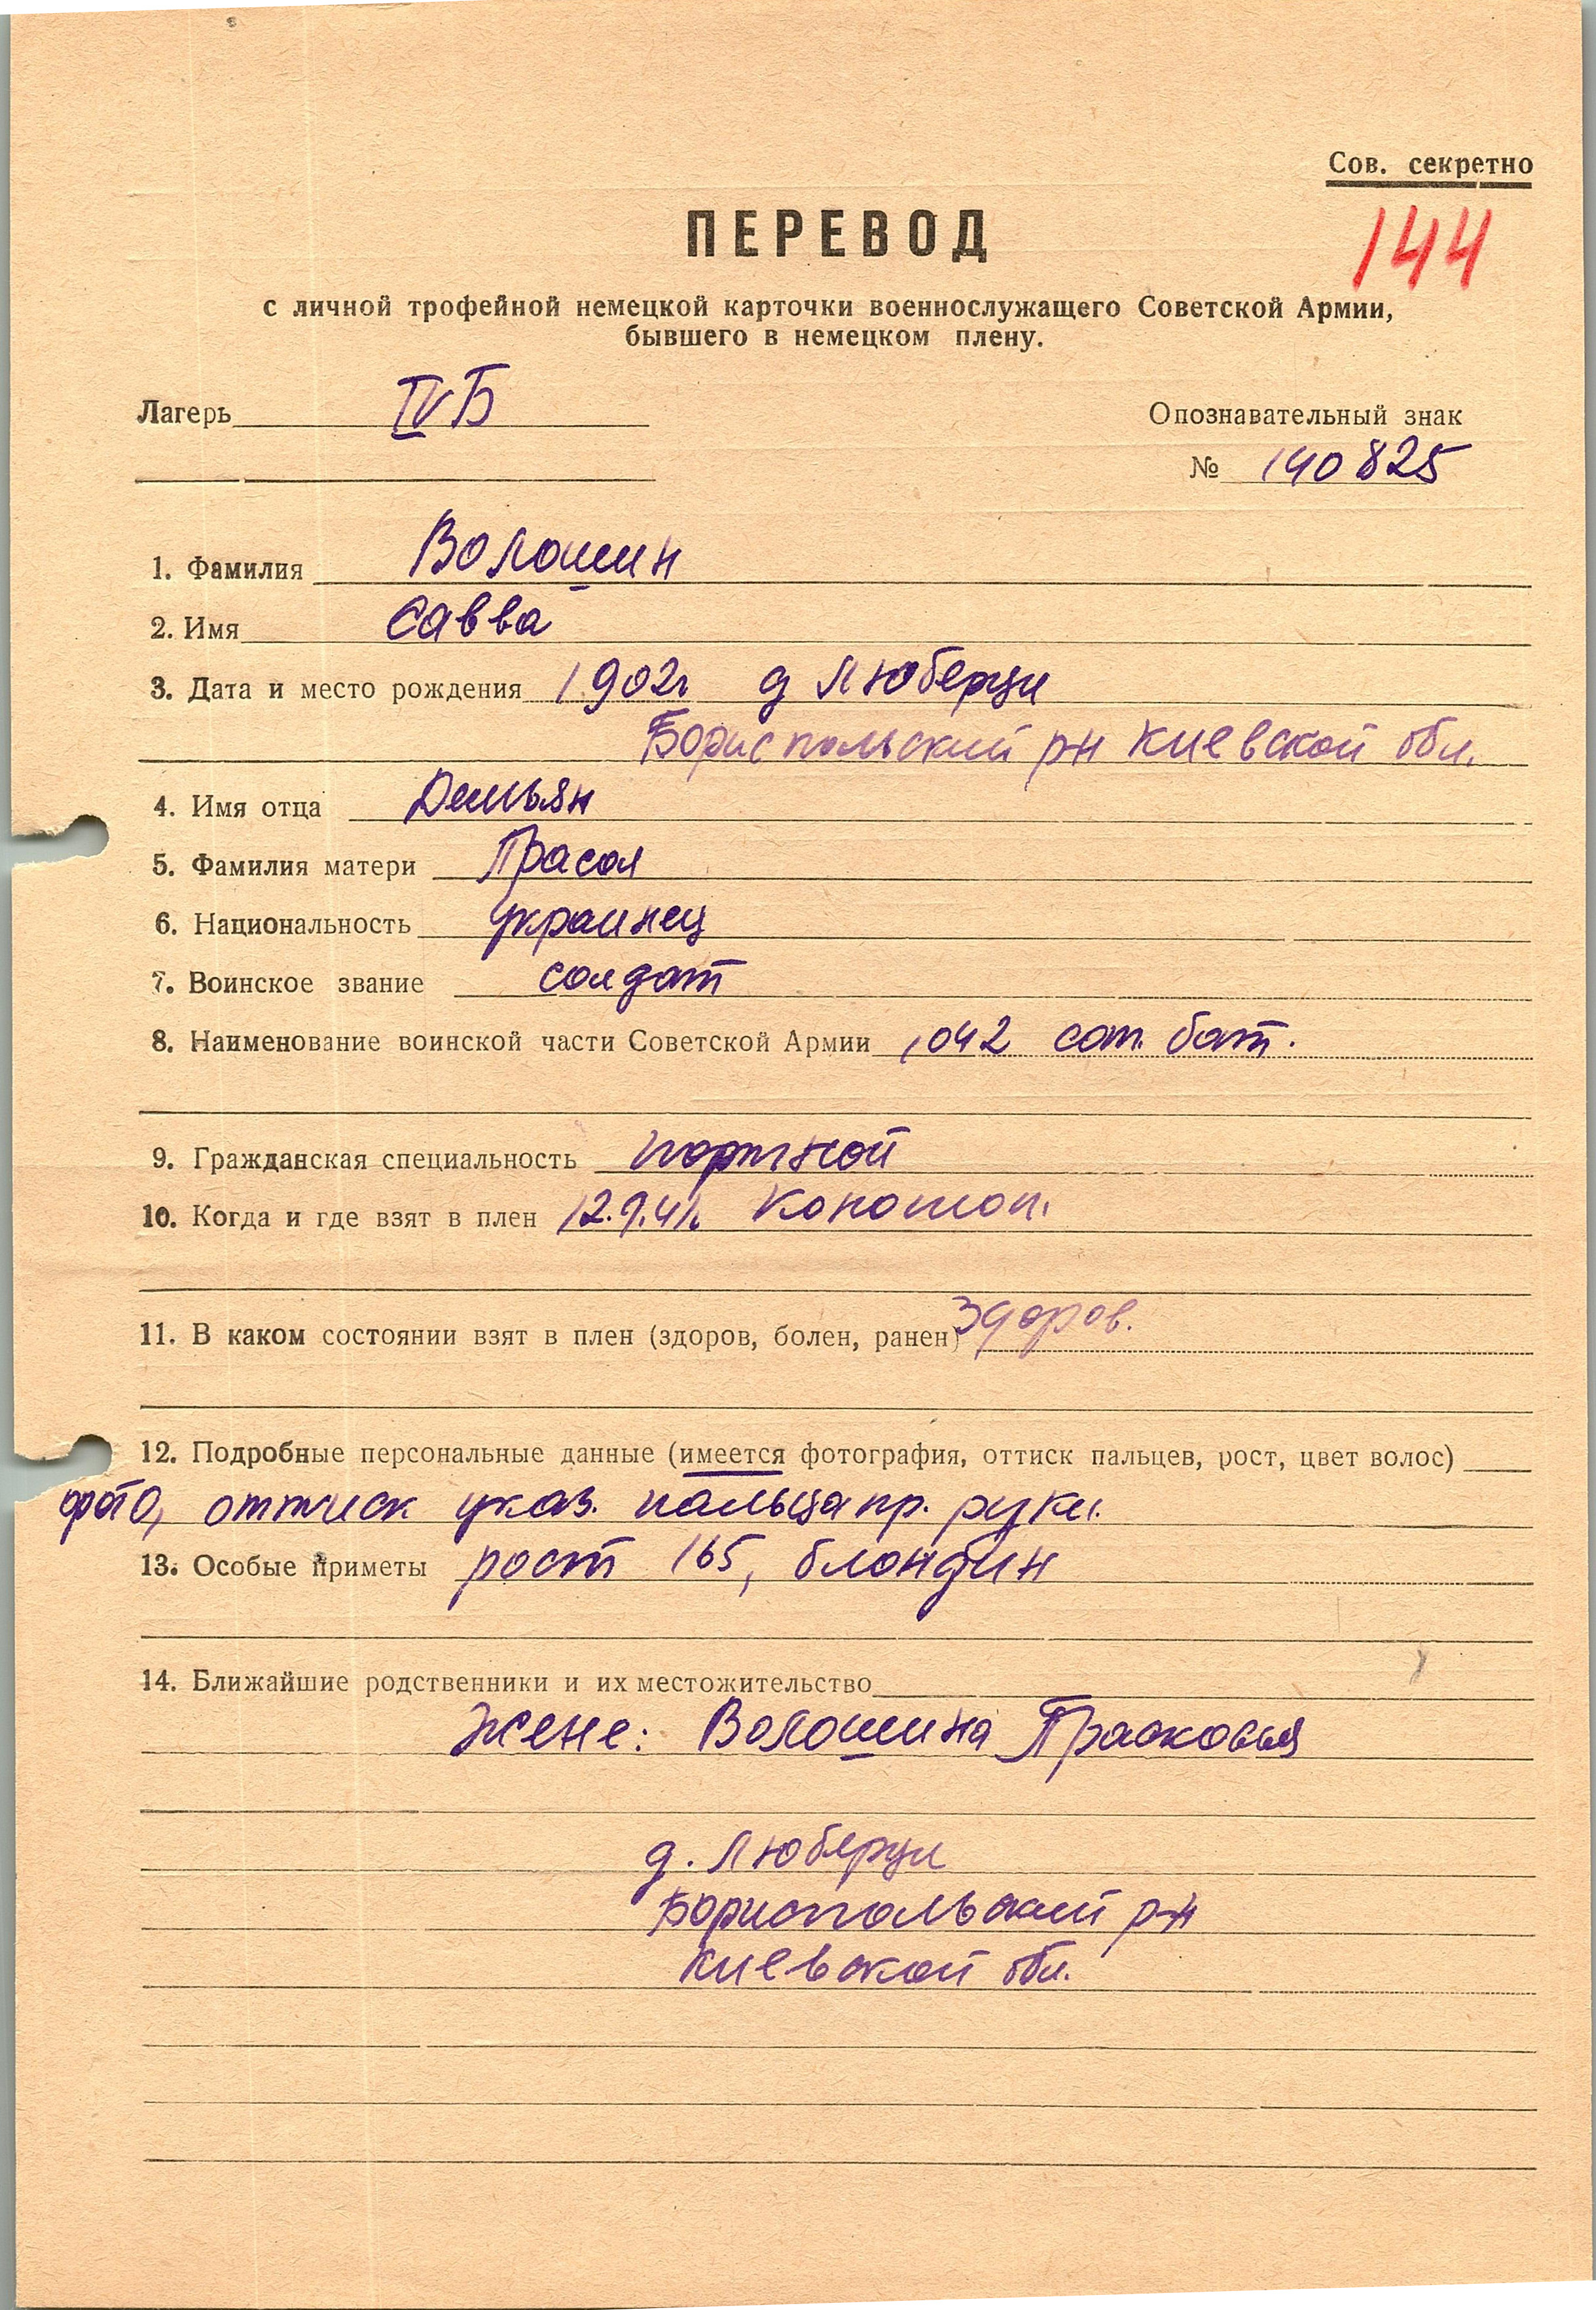 Сов. секретно
ПЕРЕВОД
144
с личной трофейной немецкой карточки военнослужащего Советской Армии,
бывшего в немецком плену.
Лагерь IVБ
Опознавательный знак
№ 140825
1. Фамилия Волошин
2. Имя Савва
3. Дата и место рождения 1902г д Люберци
Бориспольский р-н Киевской обл.
4. Имя отца Демьян
5. Фамилия матери Прасол
6. Национальность украинец
7. Воинское звание солдат
8. Наименование воинской части Советской Армии 1042 бат.
9. Гражданская специальность портной
10. Когда и где взят в плен 12.9.41г. Конотоп.
11. В каком состоянии взят в плен (здоров, болен, ранен) здоров.
12. Подробные персональные данные (имеется фотография, оттиск пальцев, рост, цвет волос)
фото, оттиск указ. пальца пр. руки.
13. Особые приметы рост 165, блондин
14. Ближайшие родственники и их местожительство
Жене: Волошина Прасковья
д. Люберци
Бориспольский р-н
Киевской обл.